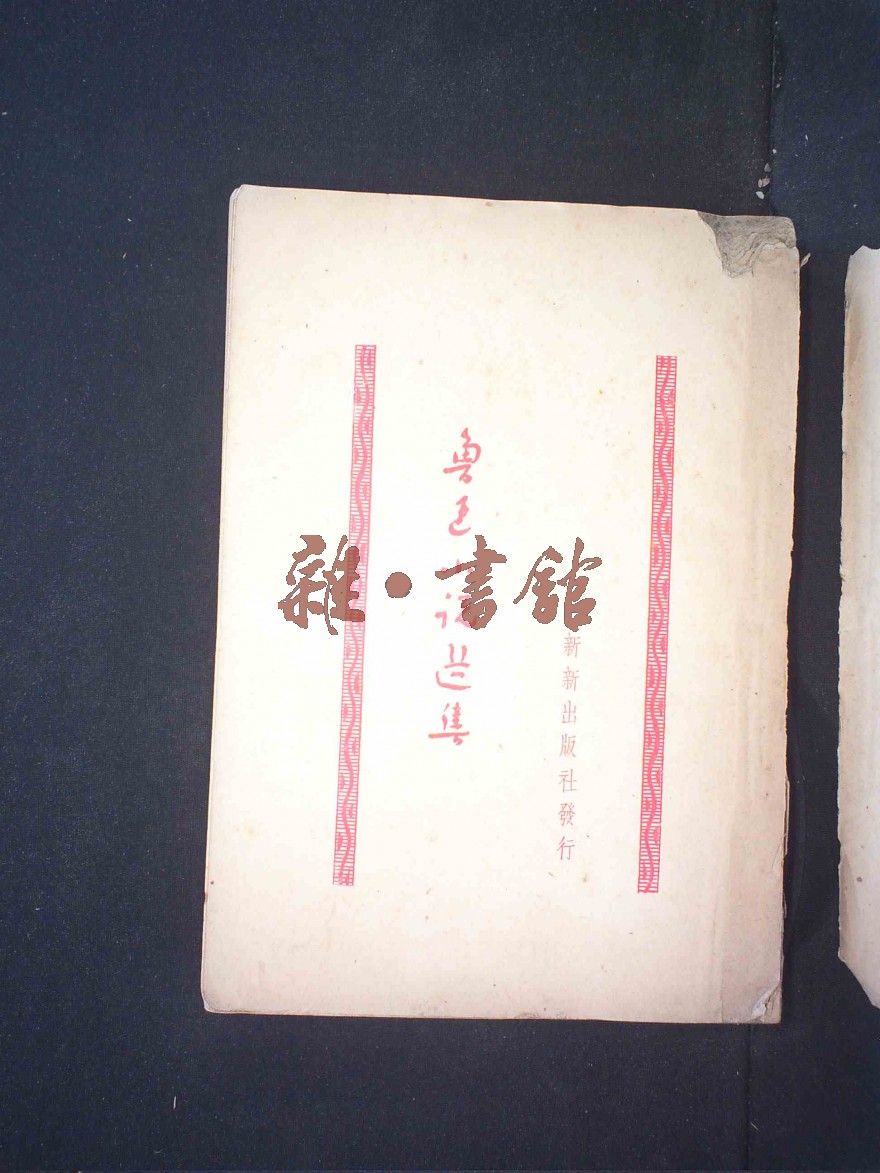 魯迅小説選集
新新出版社發行
雜·書館